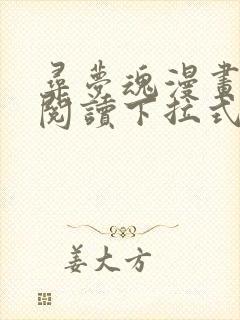 尋夢魂漫畫
閱讀下拉式
姜大方